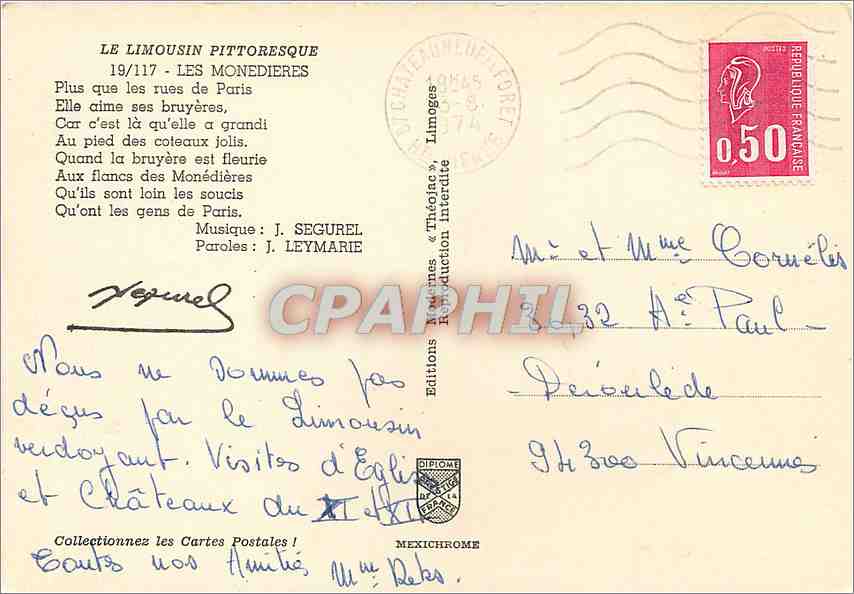 LE LIMOUSIN PITTORESQUE
19/117 - LES MONEDIERES
Plus que les rues de Paris
Elle aime ses bruyères,
Car c'est là qu'elle a grandi
Au pied des coteaux jolis.
Quand la bruyère est fleurie
Aux flancs des Monédières
Qu'ils sont loin les soucis
Qu'ont les gens de Paris.
Musique : J. SEGUREL
Paroles : J. LEYMARIE
Segurel
Nous ne sommes pas
déçus par le Limousin
verdoyant. Visites d'Eglises
et Châteaux du XI et XII
Collectionnez les Cartes Postales !
Toutes nos Amitiés
Mme
Editions Modernes « Théojac », Limoges
Reproduction interdite
DIPLOME
PRESTIGE
DE LA
FRANCE
MEXICHROME
87 CHATEAUNEUF LA FORET
18H45
1974
HTE VIENNE
POSTES
REPUBLIQUE FRANÇAISE
0,50
Mr et Mme Cornélis
30,32 Ae Paul
Déroulède
94300 Vincennes
CPAPHIL